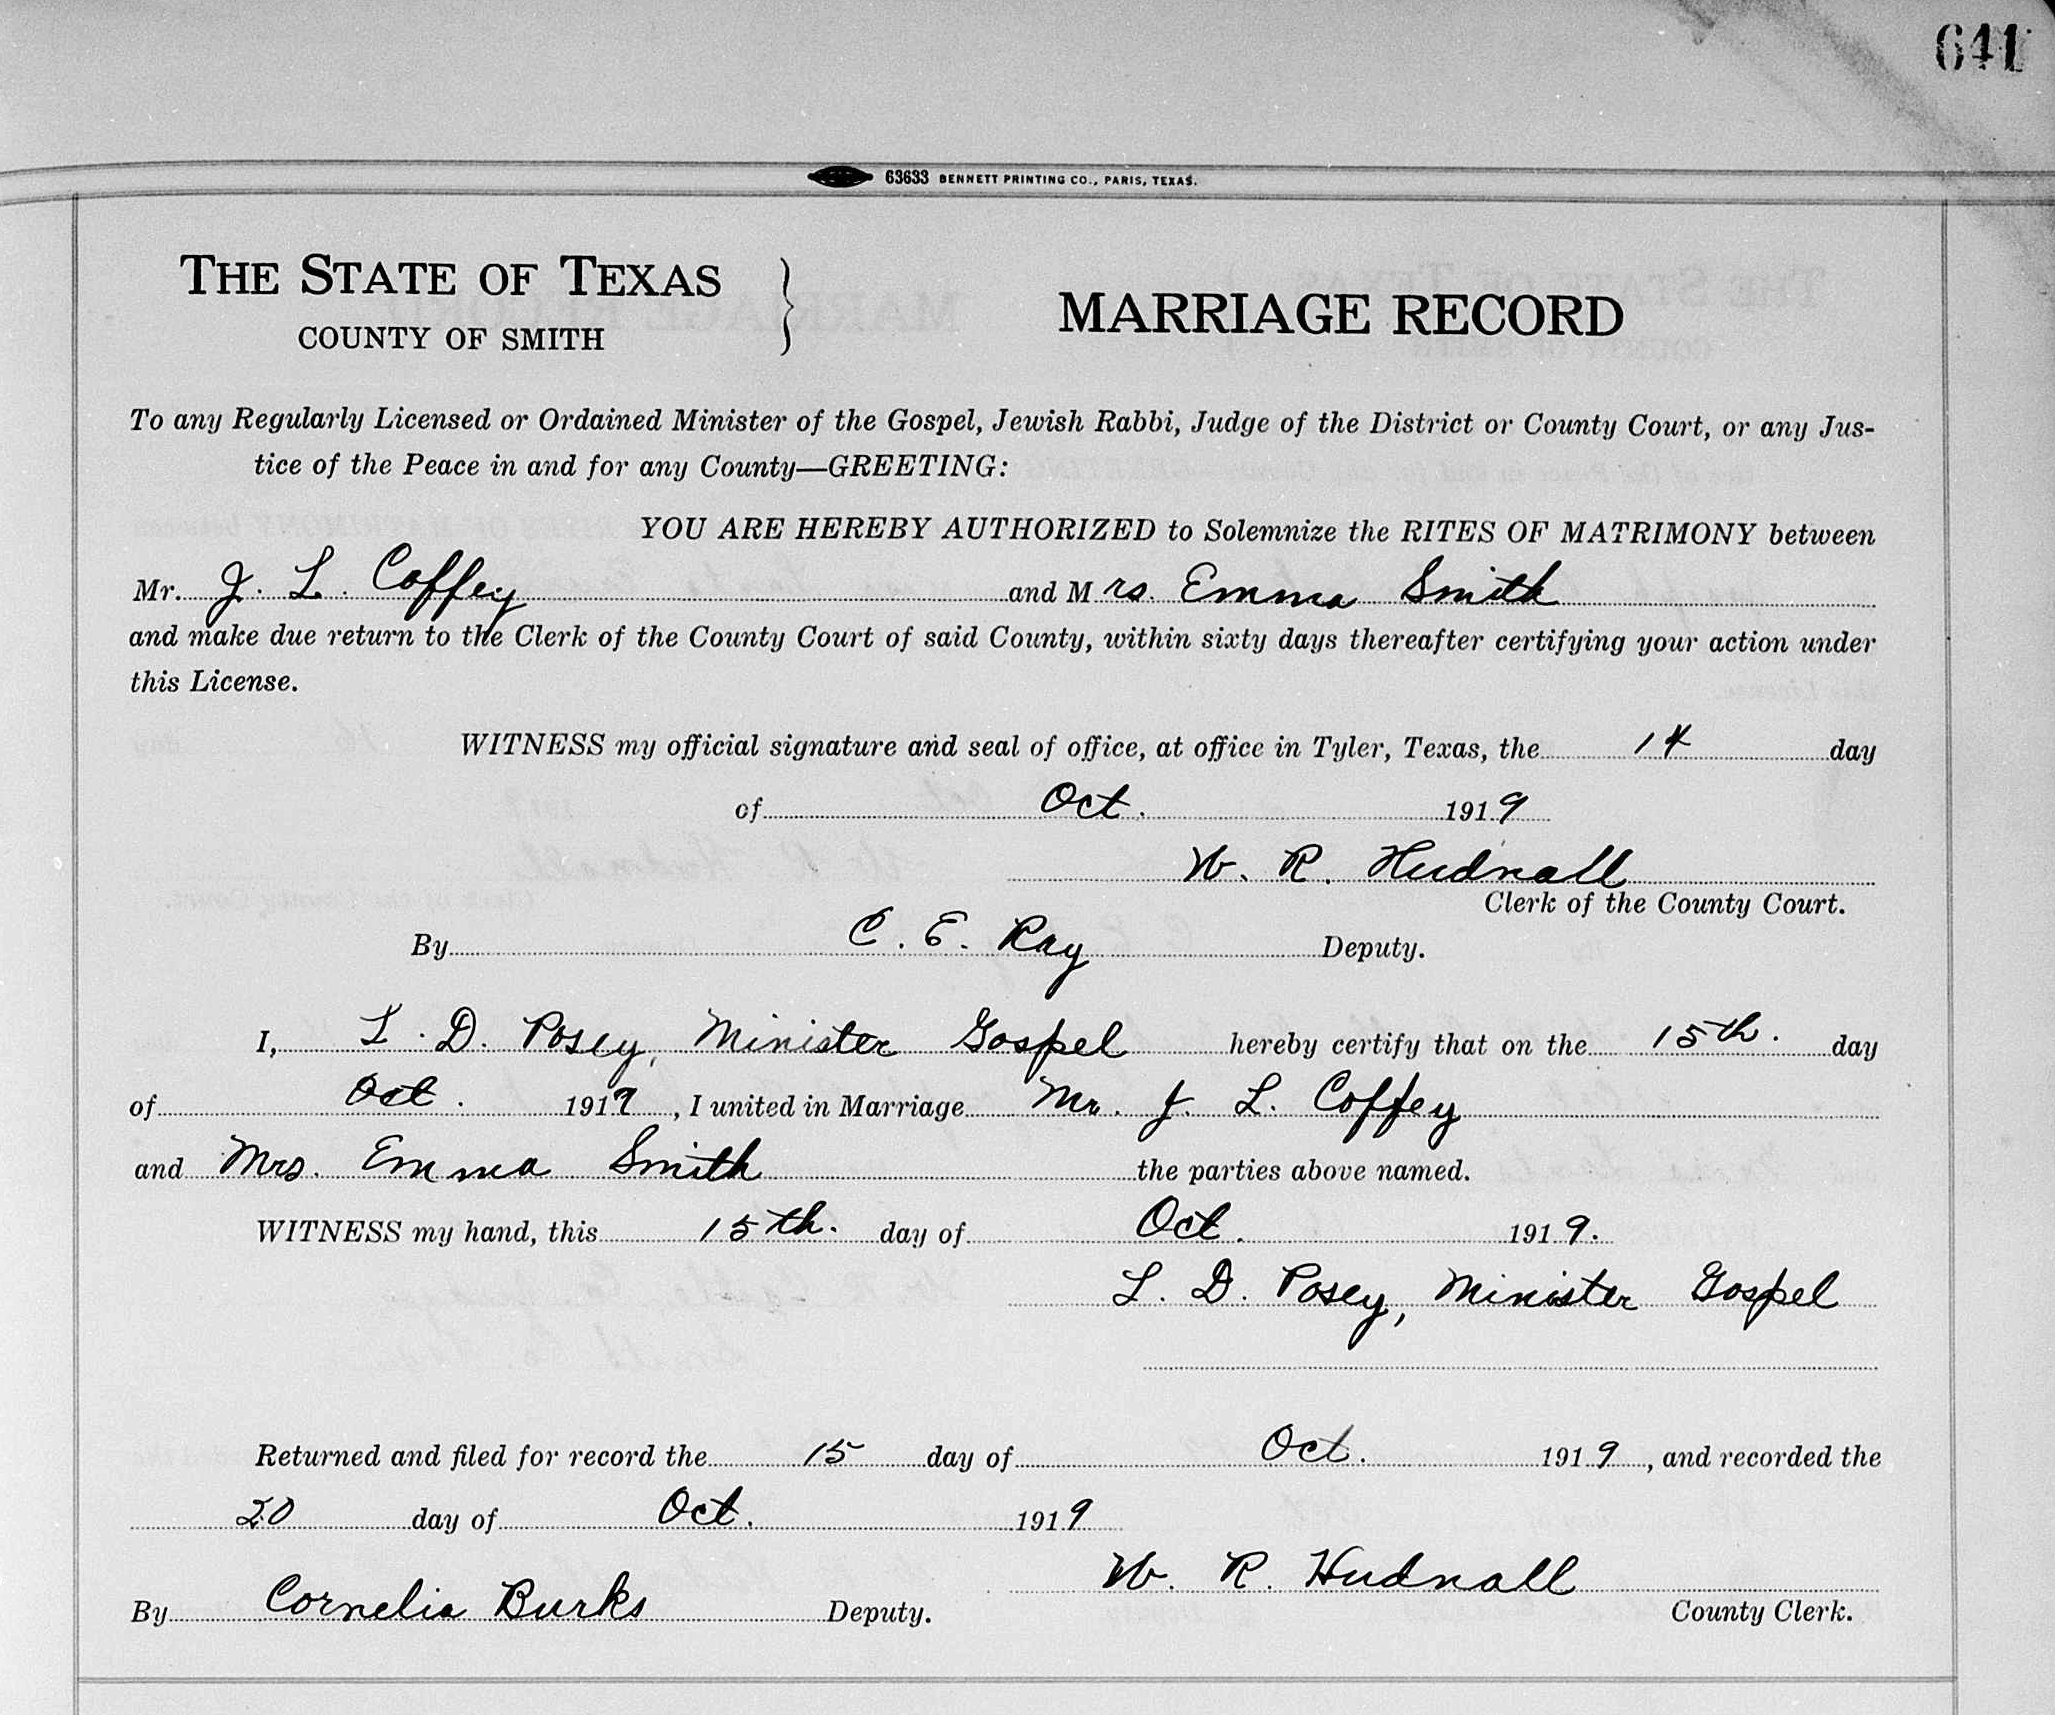 641
63633 BENNETT PRINTING CO., PARIS, TEXAS.
THE STATE OF TEXAS
COUNTY OF SMITH
MARRIAGE RECORD
To any Regularly Licensed or Ordained Minister of the Gospel, Jewish Rabbi, Judge of the District or County Court, or any Jus-
tice of the Peace in and for any County—GREETING:
YOU ARE HEREBY AUTHORIZED to Solemnize the RITES OF MATRIMONY between
Mr. J. L. Coffey and Mrs. Emma Smith
and make due return to the Clerk of the County Court of said County, within sixty days thereafter certifying your action under
this License.
WITNESS my official signature and seal of office, at office in Tyler, Texas, the 14 day
of Oct. 1919
W. R. Hudnall
Clerk of the County Court.
By C. E. Ray Deputy.
I, L. D. Posey, Minister Gospel hereby certify that on the 15th. day
of Oct. 1919, I united in Marriage Mr. J. L. Coffey
and Mrs. Emma Smith the parties above named.
WITNESS my hand, this 15th. day of Oct. 1919.
L. D. Posey, Minister Gospel
Returned and filed for record the 15 day of Oct. 1919, and recorded the
20 day of Oct. 1919
W. R. Hudnall
By Cornelia Burks Deputy. County Clerk.